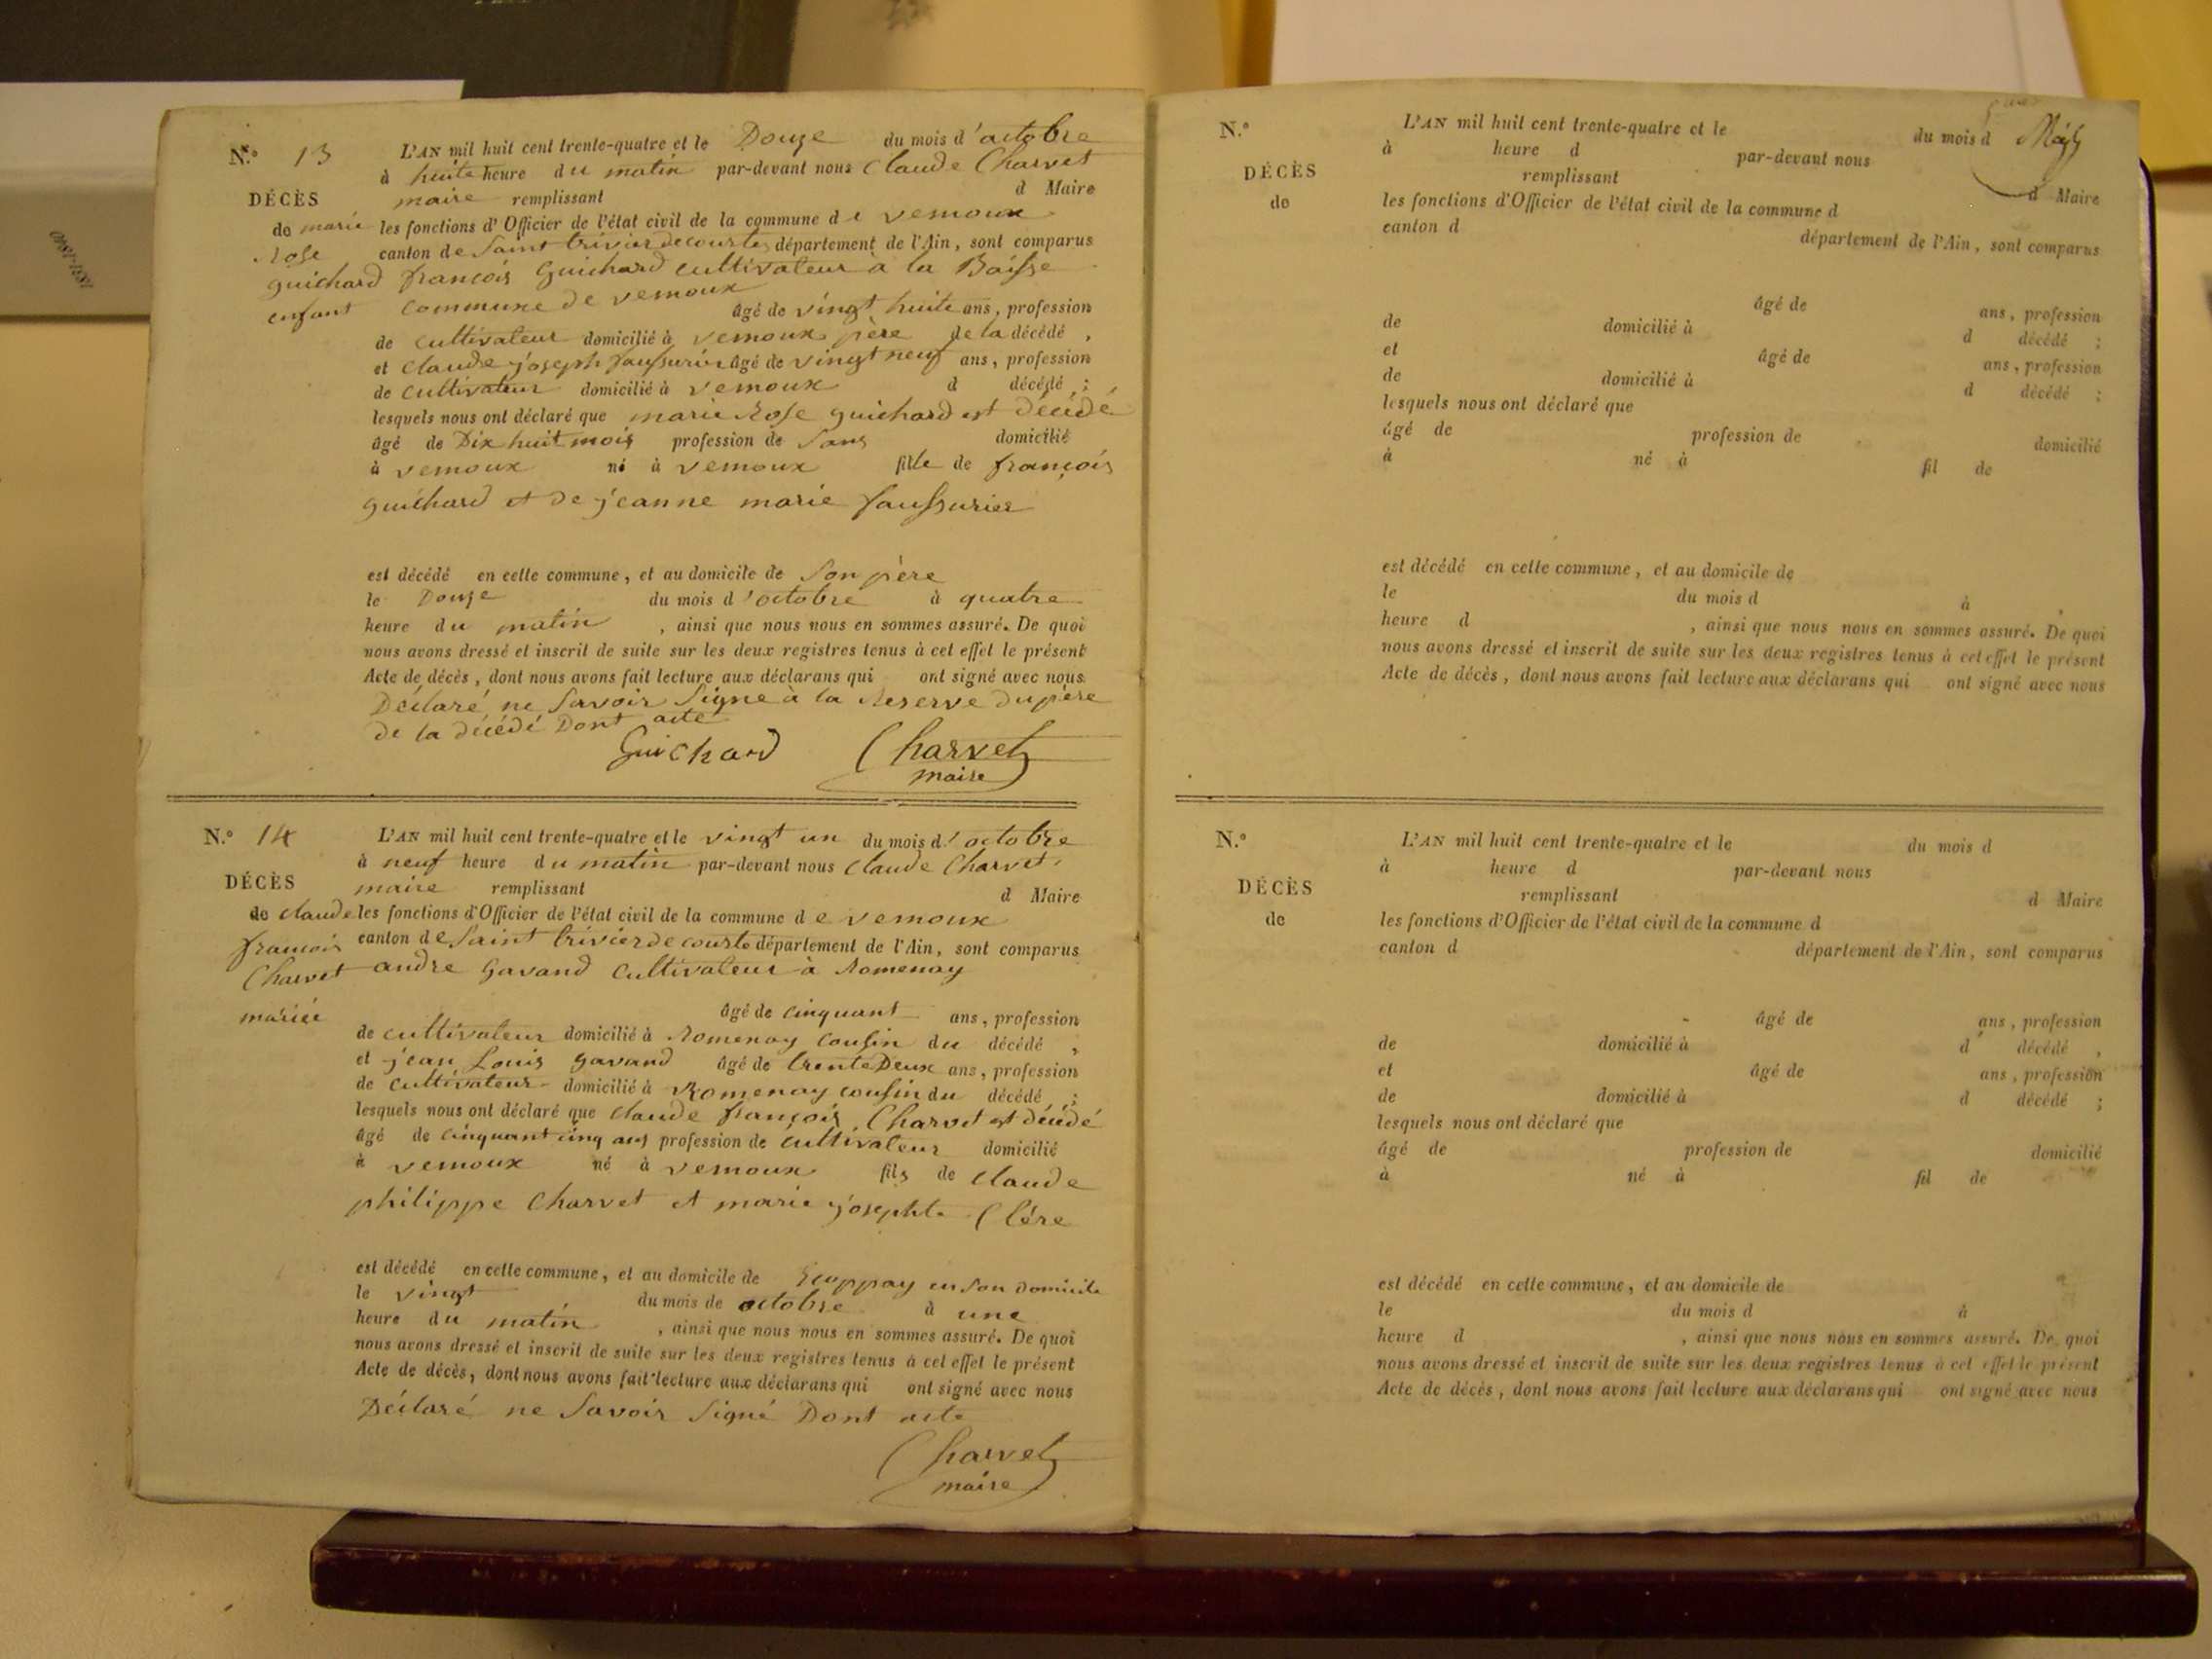 N.º 13
DÉCÈS
de marie
Rose
guichard
enfant
L'AN mil huit cent trente-quatre et le Douze du mois d'octobre
à huite heure du matin par-devant nous Claude Charvet
maire remplissant d Maire
les fonctions d'Officier de l'état civil de la commune de vernoux
canton de Saint trivier de courtes département de l'Ain, sont comparus
françois Guichard cultivateur à la Baisse
commune de vernoux
âgé de vingt huite ans, profession
de cultivateur domicilié à vernoux père de la décédé ,
et Claude joseph âgé de vingt neuf ans, profession
de cultivateur domicilié à vernoux d décédé ;
lesquels nous ont déclaré que marie Rose guichard est décédé
âgé de Dix huit mois profession de Sans domicilié
à vernoux né à vernoux fille de françois
guichard et de jeanne marie
est décédé en cette commune, et au domicile de Son père
le Douze du mois d'octobre à quatre
heure du matin , ainsi que nous nous en sommes assuré. De quoi
nous avons dressé et inscrit de suite sur les deux registres tenus à cet effet le présent
Acte de décès, dont nous avons fait lecture aux déclarans qui ont signé avec nous
Déclaré ne Savoir Signe à la Reserve du père
de la décédé Dont acte
Guichard Charvet
maire
N.º 14
DÉCÈS
de claude
françois
Charvet
mariée
L'AN mil huit cent trente-quatre et le vingt un du mois d'octobre
à neuf heure du matin par-devant nous Claude Charvet
maire remplissant d Maire
les fonctions d'Officier de l'état civil de la commune de vernoux
canton de Saint trivier de courte département de l'Ain, sont comparus
andre Gavand Cultivateur à Romenay
âgé de cinquant ans, profession
de cultivateur domicilié à Romenay cousin du décédé ,
et jean Louis gavand âgé de trente Deux ans, profession
de cultivateur domicilié à Romenay cousin du décédé ;
lesquels nous ont déclaré que claude françois Charvet est décédé
âgé de cinquant cinq ans profession de cultivateur domicilié
à vernoux né à vernoux fils de claude
philippe Charvet et marie josephte Clére
est décédé en cette commune, et au domicile de en son domicile
le vingt du mois de octobre à une
heure du matin , ainsi que nous nous en sommes assuré. De quoi
nous avons dressé et inscrit de suite sur les deux registres tenus à cet effet le présent
Acte de décès, dont nous avons fait lecture aux déclarans qui ont signé avec nous
Déclaré ne Savoir Signé Dont acte
Charvet
maire
N.º
DÉCÈS
de
L'AN mil huit cent trente-quatre et le du mois d
à heure d par-devant nous
remplissant d Maire
les fonctions d'Officier de l'état civil de la commune d
canton d département de l'Ain, sont comparus
âgé de ans, profession
de domicilié à d décédé ;
et âgé de ans, profession
de domicilié à d décédé ;
lesquels nous ont déclaré que
âgé de profession de domicilié
à né à fil de
est décédé en cette commune, et au domicile de
le du mois d à
heure d , ainsi que nous nous en sommes assuré. De quoi
nous avons dressé et inscrit de suite sur les deux registres tenus à cet effet le présent
Acte de décès, dont nous avons fait lecture aux déclarans qui ont signé avec nous
N.º
DÉCÈS
de
L'AN mil huit cent trente-quatre et le du mois d
à heure d par-devant nous
remplissant d Maire
les fonctions d'Officier de l'état civil de la commune d
canton d département de l'Ain, sont comparus
âgé de ans, profession
de domicilié à d décédé ,
et âgé de ans, profession
de domicilié à d décédé ;
lesquels nous ont déclaré que
âgé de profession de domicilié
à né à fil de
est décédé en cette commune, et au domicile de
le du mois d à
heure d , ainsi que nous nous en sommes assuré. De quoi
nous avons dressé et inscrit de suite sur les deux registres tenus à cet effet le présent
Acte de décès, dont nous avons fait lecture aux déclarans qui ont signé avec nous